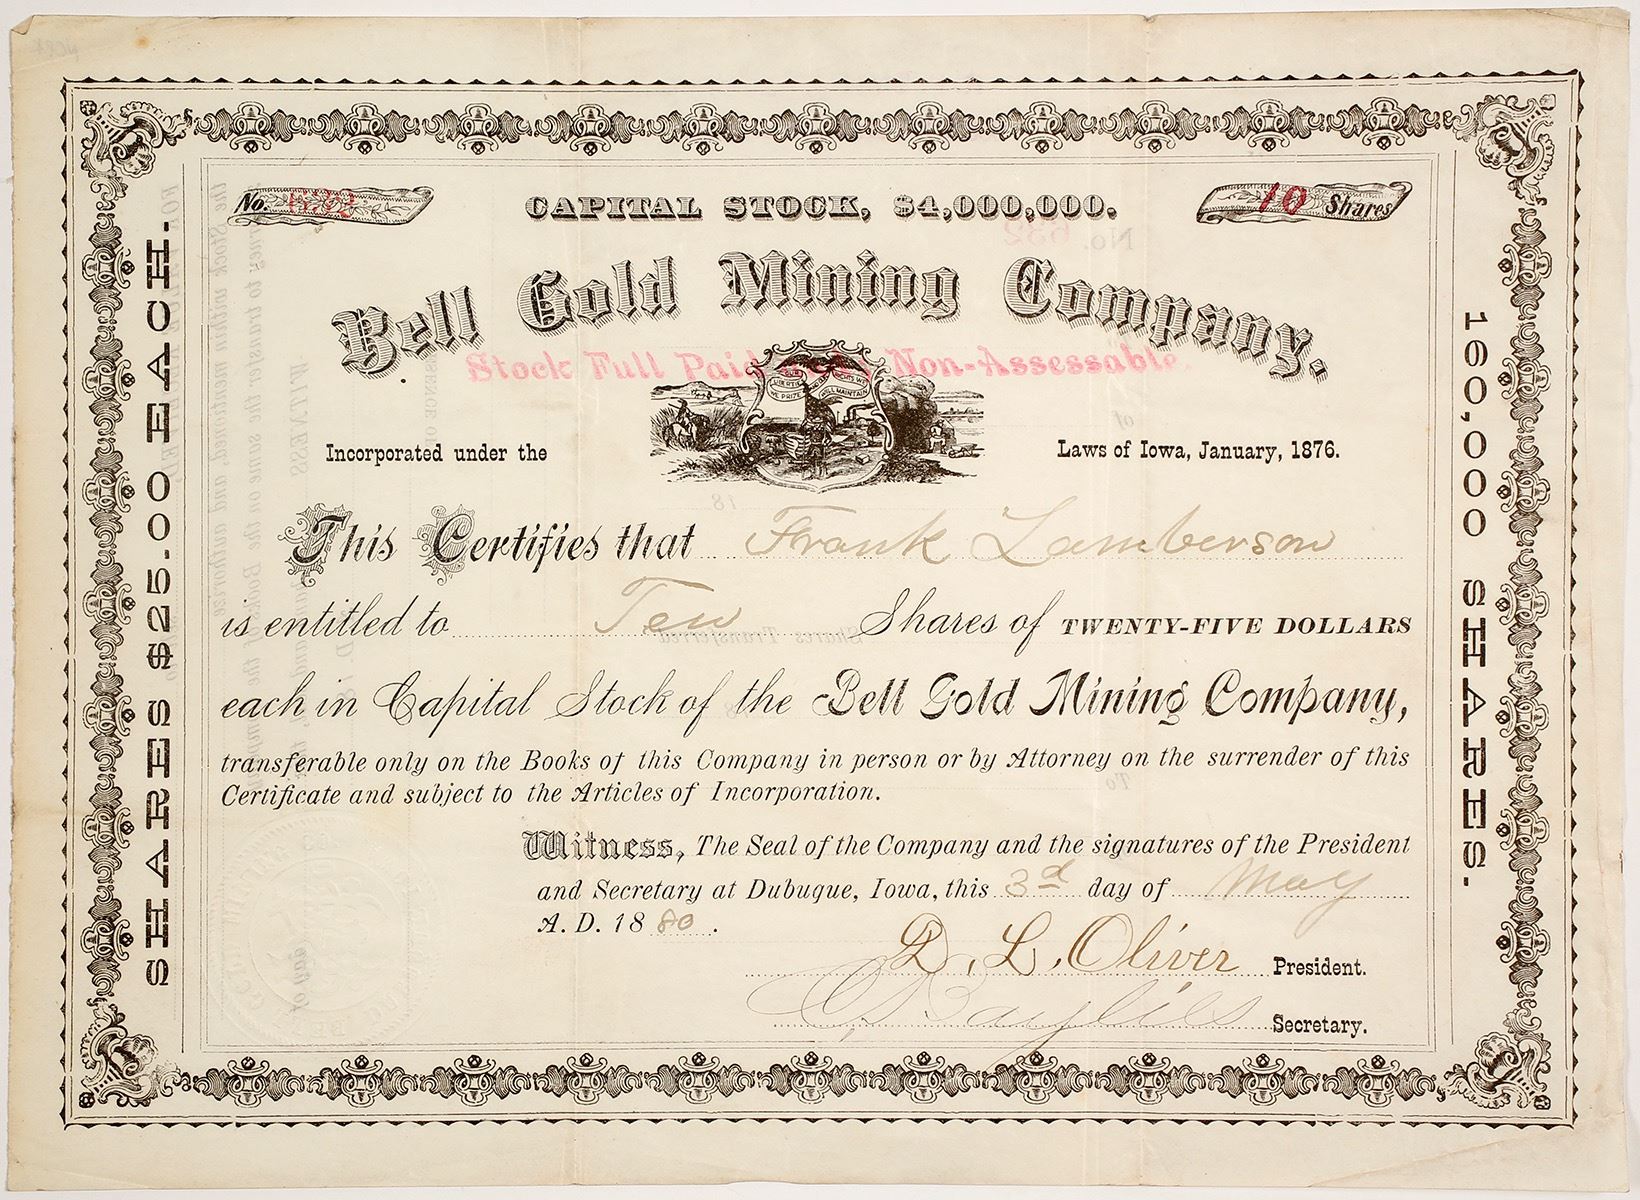 No. 632
CAPITAL STOCK, $4,000,000.
10 Shares
Bell Gold Mining Company.
Stock Full Paid and Non-Assessable.
LIBERTIES WE PRIZE AND OUR RIGHTS WE WILL MAINTAIN
Incorporated under the Laws of Iowa, January, 1876.
This Certifies that Frank Lamberson
is entitled to Ten Shares of TWENTY-FIVE DOLLARS
each in Capital Stock of the Bell Gold Mining Company,
transferable only on the Books of this Company in person or by Attorney on the surrender of this
Certificate and subject to the Articles of Incorporation.
Witness, The Seal of the Company and the signatures of the President
and Secretary at Dubuque, Iowa, this 3d day of May
A. D. 1880.
D. L. Oliver President.
Bayliss Secretary.
SHARES $25.00 EACH.
160,000 SHARES.